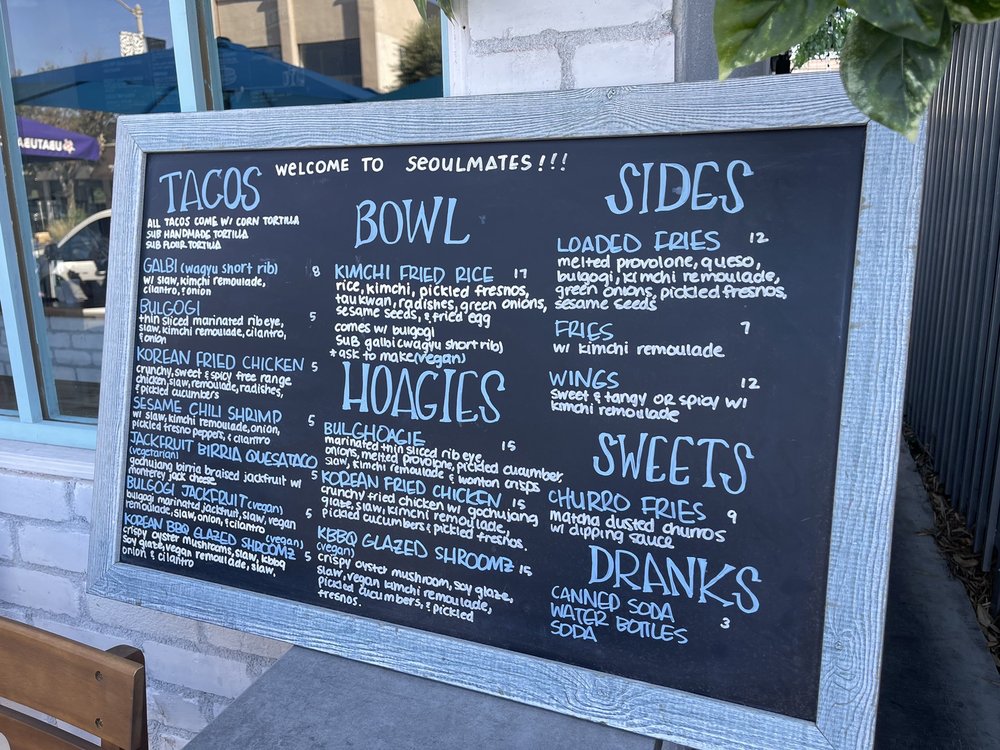 WELCOME TO SEOULMATES!!!
TACOS
ALL TACOS COME W/ CORN TORTILLA
SUB HANDMADE TORTILLA
SUB FLOUR TORTILLA
GALBI (wagyu short rib) 8
w/ slaw, kimchi remoulade,
cilantro, & onion
BULGOGI 5
thin sliced marinated rib eye,
slaw, kimchi remoulade, cilantro,
& onion
KOREAN FRIED CHICKEN 5
crunchy, sweet & spicy free range
chicken, slaw, remoulade, radishes,
& pickled cucumbers
SESAME CHILI SHRIMP 5
w/ slaw, kimchi remoulade, onion,
pickled fresno peppers, & cilantro
JACKFRUIT BIRRIA QUESATACO 5
(vegetarian)
gochujang birria braised jackfruit w/
monterey jack cheese
BULGOGI JACKFRUIT (vegan) 5
bulgogi marinated jackfruit, slaw, vegan
remoulade, slaw, onion, & cilantro
KOREAN BBQ GLAZED SHROOMZ (vegan) 5
crispy oyster mushrooms, slaw, kbbq
soy glaze, vegan remoulade, slaw,
onion & cilantro
BOWL
KIMCHI FRIED RICE 17
rice, kimchi, pickled fresnos,
taukwan, radishes, green onions,
sesame seeds, & fried egg
comes w/ bulgogi
SUB galbi (wagyu short rib)
*ask to make (vegan)
HOAGIES
BULGHOAGIE 15
marinated thin sliced rib eye,
onions, melted provolone, pickled cucumber,
slaw, kimchi remoulade & wonton crisps
KOREAN FRIED CHICKEN 15
crunchy fried chicken w/ gochujang
glaze, slaw, kimchi remoulade,
pickled cucumbers & pickled fresnos.
KBBQ GLAZED SHROOMZ 15
(vegan)
crispy oyster mushroom, soy glaze,
slaw, vegan kimchi remoulade,
pickled cucumbers, & pickled
fresnos.
SIDES
LOADED FRIES 12
melted provolone, queso,
bulgogi, kimchi remoulade,
green onions, pickled fresnos,
sesame seeds
FRIES 7
w/ kimchi remoulade
WINGS 12
sweet & tangy OR spicy w/
kimchi remoulade
SWEETS
CHURRO FRIES 9
matcha dusted churros
w/ dipping sauce
DRANKS
CANNED SODA
WATER BOTTLES 3
SODA